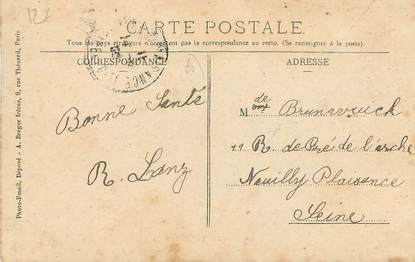 12€
CARTE POSTALE.
Tous les pays étrangers n'acceptent pas la correspondance au recto. (Se renseigner à la poste).
CORRESPONDANCE
Bonne Santé
R. Lanz
ADRESSE
Mde Brunswick
11 R. de Pré de l'arche
Neuilly Plaisance
Seine
Photo-Email, Déposé - A. Berger frères, 9, rue Thénard, Paris